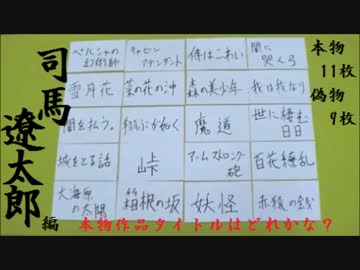 司馬遼太郎編
本物
11枚
偽物
9枚
ペルシャの
幻術師
キャビン
アテンダント
侍はこわい
闇に
哭く弓
雪月花
菜の花の沖
森の美少年
我は我なり
闇を払う。
翔ぶが如く
魔道
世に棲む
日日
城をとる話
峠
アームストロング
砲
百花繚乱
大海原
の太陽
箱根の坂
妖怪
の銭
本物作品タイトルはどれかな？